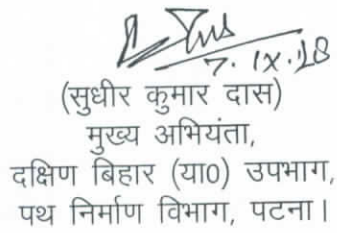 7.IX.18
(सुधीर कुमार दास)
मुख्य अभियंता,
दक्षिण बिहार (या0) उपभाग,
पथ निर्माण विभाग, पटना।